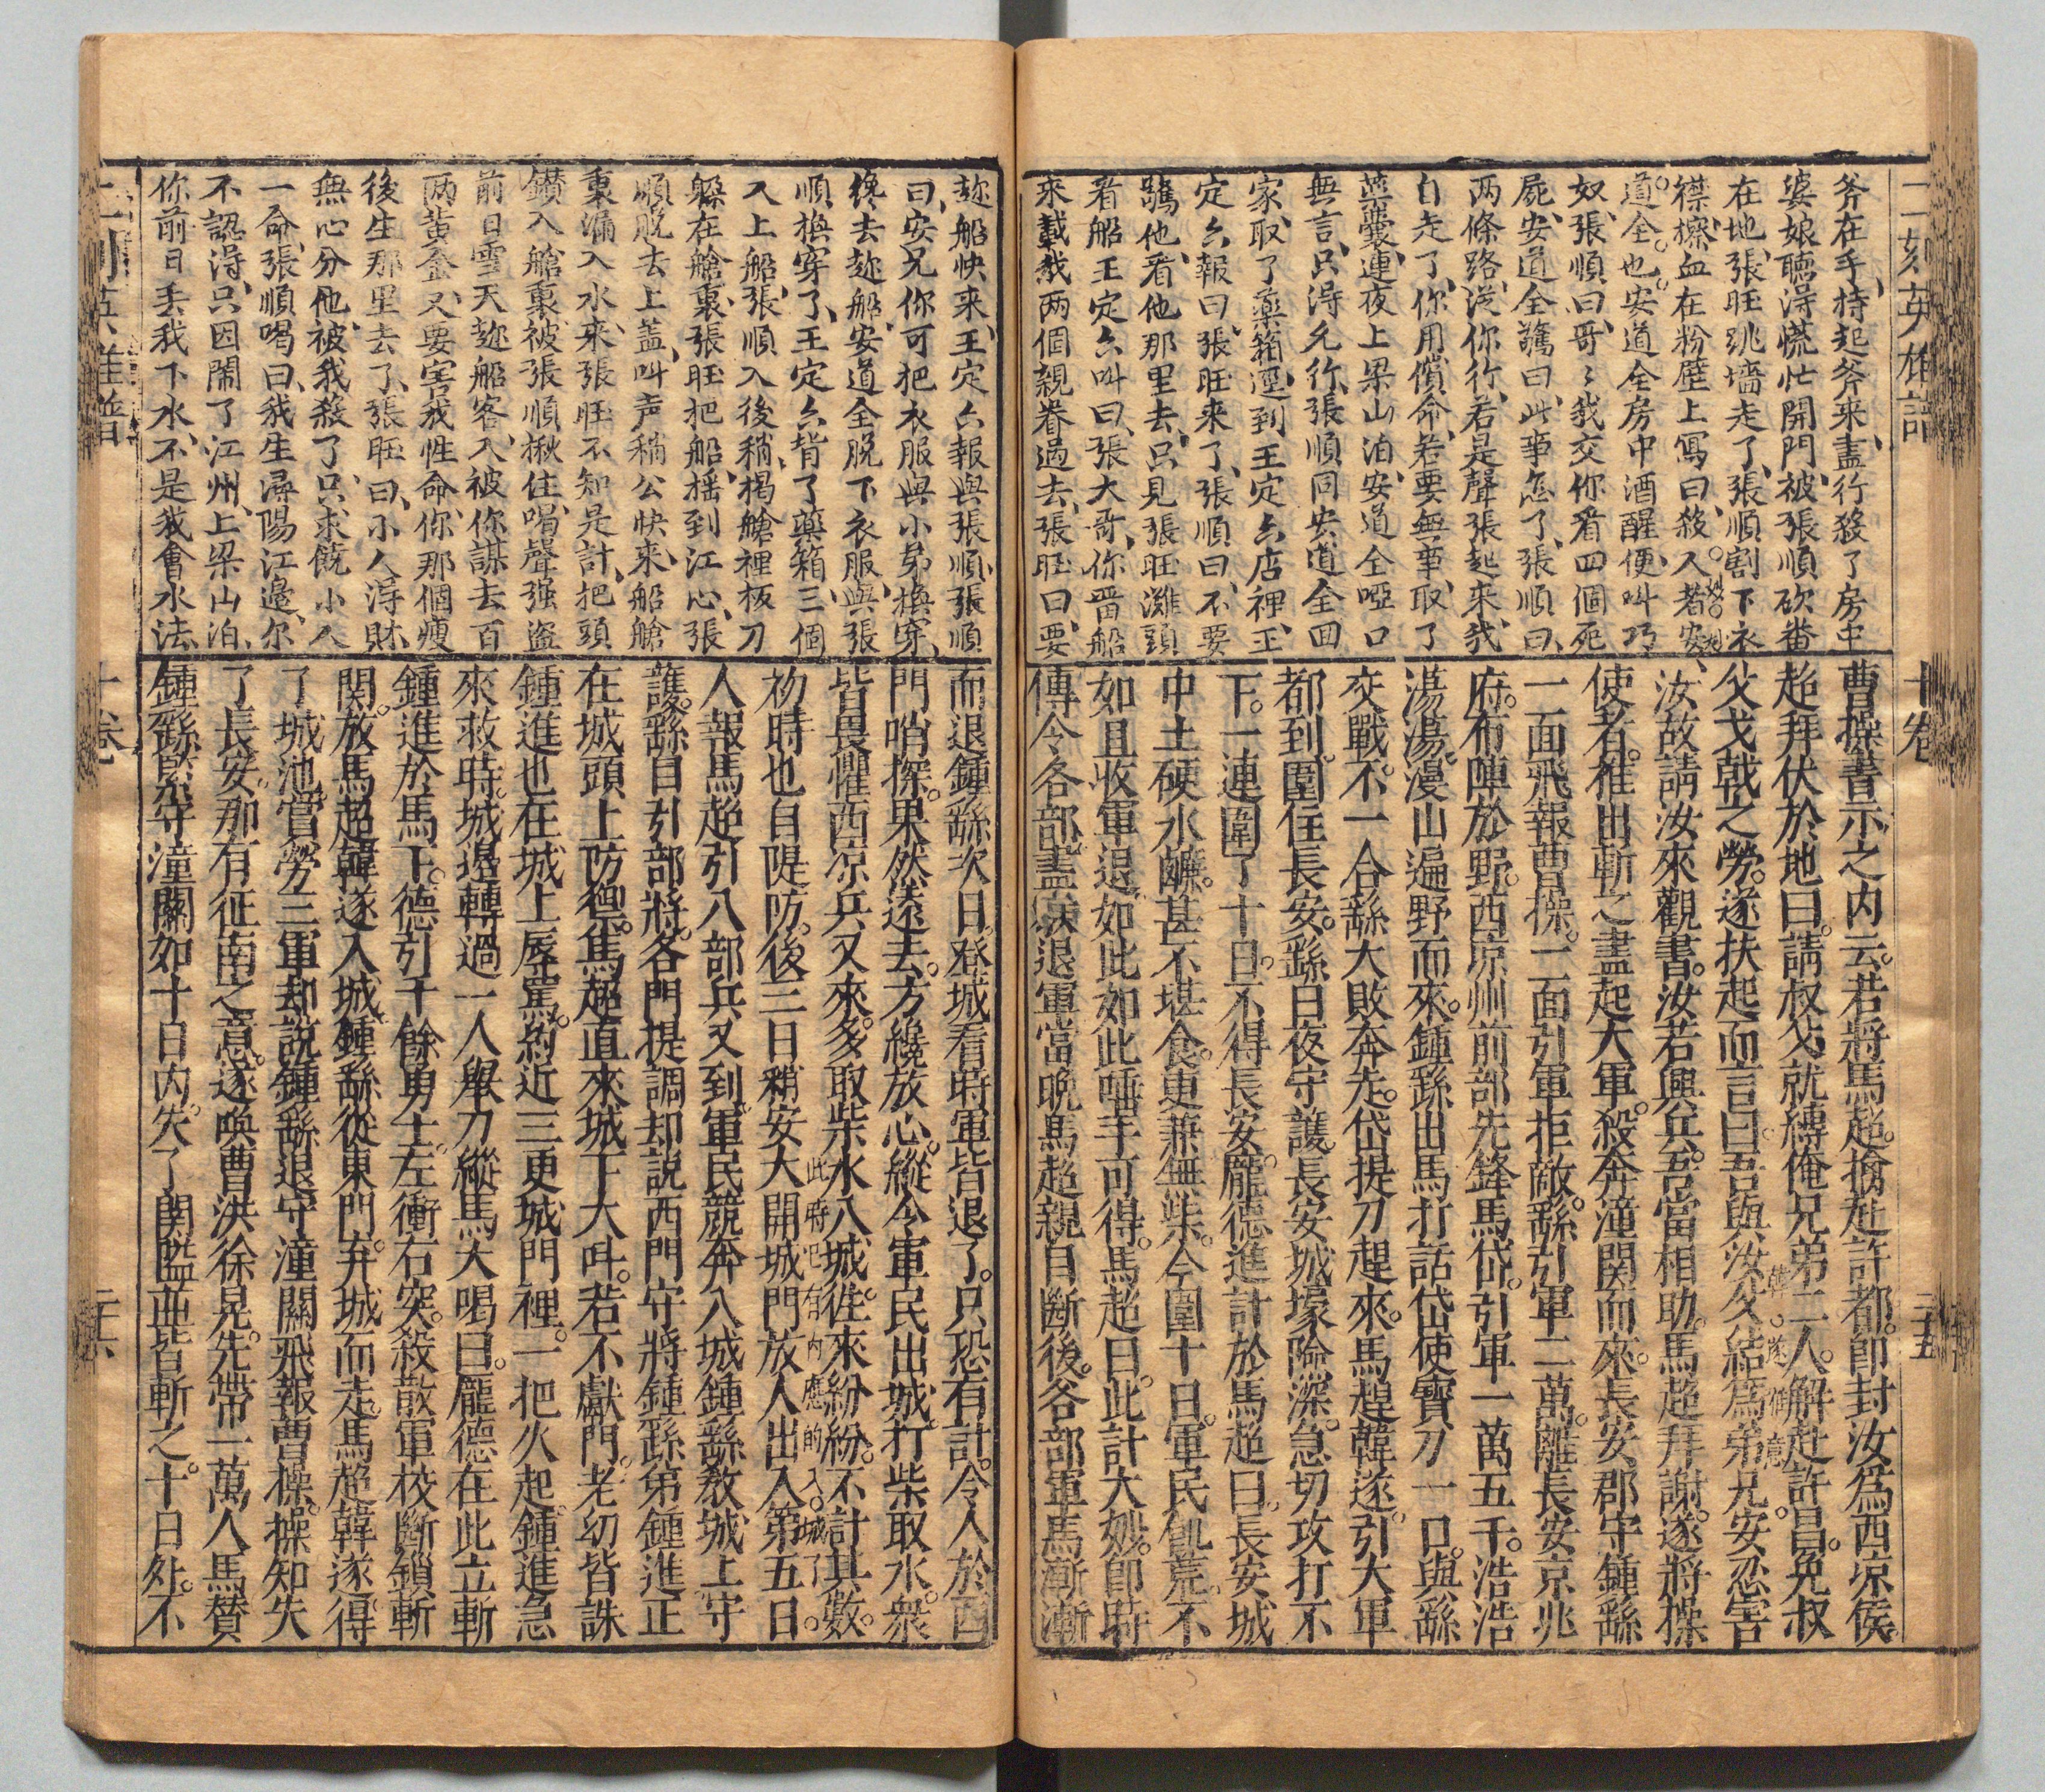 二刻英雄譜
十卷
斧在手持起斧來盡行殺了房中
婆娘聽淂慌忙開門被張順砍番
在地張旺跳墻走了張順割下衣
襟㩒血在粉壁上寫曰殺人者安
道全也安道全房中酒醒便叫巧
奴張順曰哥〻我交你看四個死
屍安道全驚曰此事怎了張順曰
两條路從你行若是聲張起來我
自走了你用償命若要無事取了
藥囊連夜上梁山泊安道全啞口
無言只淂允行張順同安道全回
家取了藥箱逕到王定六店裡王
定六報曰張旺来了張順曰不要
驚他看他那里去只見張旺灘頭
看船王定六叫曰張大哥你畱船
來載我两個親眷過去張旺曰要
曹操書示之内云若將馬超擒赴許都即封汝爲西凉侯
超拜伏於地曰請叔父就縛俺兄弟二人解赴許昌免叔
父戈戟之勞遂扶起而言曰吾與汝父結爲弟兄安忍害
韓遂仰意
汝故請汝來觀書汝若興兵吾當相助馬超拜謝遂將操
使者推出斬之盡起大軍殺奔潼関而來長安郡守鍾繇
一面飛報曹操一面引軍拒敵繇引軍二萬離長安京兆
府布陣於野西凉州前部先鋒馬岱引軍一萬五千浩浩
蕩蕩漫山遍野而來鍾繇出馬打話岱使寶刀一口與繇
交戰不一合繇大敗奔走岱提刀趕來馬趕韓遂引大軍
都到圍住長安繇日夜守護長安城壕險深急切攻打不
下一連圍了十日不得長安龐德進計於馬超曰長安城
中土硬水鹻甚不堪食更兼無柴今圍十日軍民飢荒不
如且收軍退如此如此唾手可得馬超曰此計大妙即時
傳令各部盡教退軍當晚馬超親自斷後各部軍馬漸漸
趂船快来王定六報與張順張順
曰安兄你可把衣服與小弟換穿
纔去趂船安道全脫下衣服與張
順換穿了王定六背了藥箱三個
入上船張順入後稍揭艙裡板刀
躱在艙裏張旺把船揺到江心張
順脫去上盖叫声稍公快来船艙
裏漏入水来張旺不知是計把頭
鑚入艙裏被張順揪住喝聲强盗
前日雪天趂船客人被你謀去百
两黃金又要害我性命你那個瘦
後生那里去了張旺曰小人淂財
無心分他被我殺了只求饒小人
一命張順喝曰我生潯陽江邊尔
不認淂只因閙了江州上梁山泊
你前日丢我下水不是我會水法
而退鍾繇次日登城看時軍皆退了只恐有計令人於西
門哨探果然遠去方纔放心縱令軍民出城打柴取水衆
皆畏懼西凉兵又來多取柴水入城徃來紛紛不計其數
此時已有内應的入城了
初時也自隄防後三日稍安大開城門放人出入第五日
人報馬超引八部兵又到軍民競奔入城鍾繇敎城上守
護繇自引部將各門提調却説西門守將鍾繇弟鍾進正
在城頭上防禦馬超直來城下大呌若不獻門老㓜皆誅
鍾進也在城上辱罵約近三更城門裡一把火起鍾進急
來救時城邉轉過一人舉刀縱馬大喝曰龐德在此立斬
鍾進於馬下德引千餘勇士左衝右突殺散軍校斷鎖斬
関放馬超韓遂入城鍾繇從東門弃城而走馬超韓遂得
了城池賞勞三軍却説鍾繇退守潼關飛報曹操操知失
了長安那有征南之意遂喚曹洪徐晃先帶一萬人馬賛
鍾繇緊守潼關如十日内失了関隘並皆斬之十日外不
二刻英雄譜
十卷